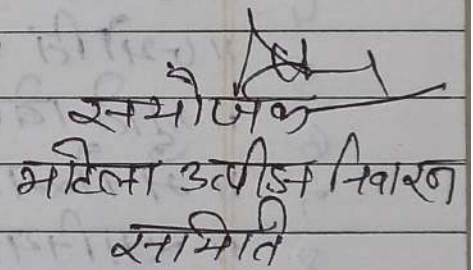 सयोजक
महिला उत्पीडन निवारन
समिति